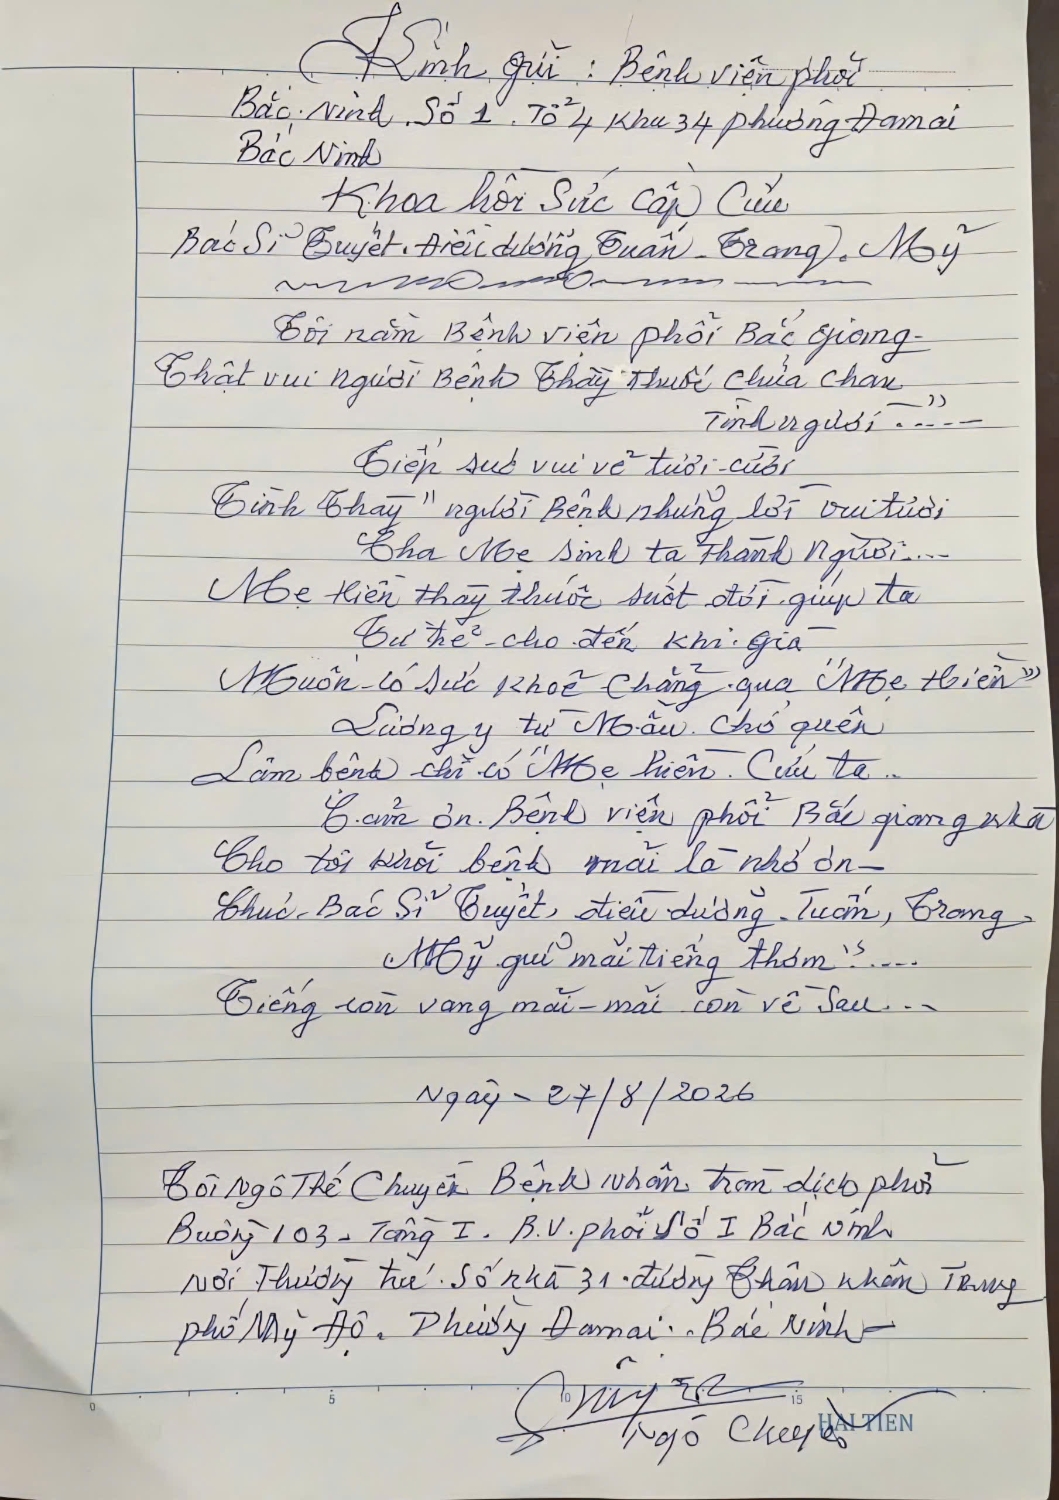 Kính gửi : Bệnh viện phổi
Bắc Ninh. Số 1. Tổ 4 Khu 34 phường Đamai
Bắc Ninh
Khoa hồi Sức Cấp Cứu
Bác Sĩ Tuyết. điều dưỡng Tuấn - Trang). Mỹ
Tôi nằm Bệnh viện phổi Bắc giang -
Thật vui người Bệnh Thầy thuốc chứa chan
Tình người ....."
Tiếp súc vui vẻ tươi cười
Tình Thầy " người Bệnh những lời vui tươi
Cha Mẹ sinh ta thành người....
Mẹ hiền thầy thuốc suốt đời giúp ta
Từ thế cho đến khi già
Muốn có sức khoẻ chẳng qua "Mẹ hiền"
Lương y từ Mẫu chớ quên
Lâm bệnh chỉ có "Mẹ hiền. Cứu ta ..
Cảm ơn. Bệnh viện phổi Bắc giang nhà
Cho tôi khỏi bệnh mãi là nhớ ơn -
Chúc Bác Sĩ Tuyết, điều dưỡng Tuấn, Trang,
Mỹ quí mãi tiếng thơm "....
Tiếng còn vang mãi - mãi còn về sau...
Ngày - 27/8/2026
Tôi Ngô Thế Chuyền Bệnh nhân tràn dịch phổi
Buồng 103 - Tầng I. B.V. phổi số I Bắc Ninh
Nơi Thường trú. Số nhà 31. đường Thân Nhân Trung
phố Mỹ Độ. Phường Đamai.. Bắc Ninh -
Ngô Chuyền
0 5 10 15
HẢI TIẾN